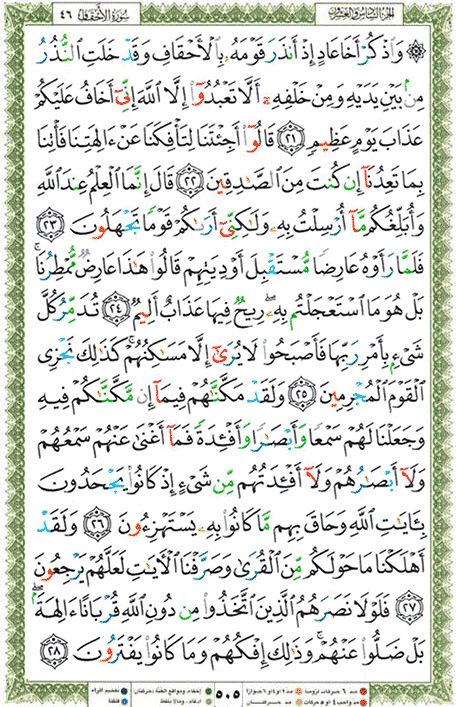 الجزء السادس والعشرون سورة الأحقاف ٤٦
۞ وَاذْكُرْ أَخَا عَادٍ إِذْ أَنذَرَ قَوْمَهُۥ بِالْأَحْقَافِ وَقَدْ خَلَتِ النُّذُرُ
مِنۢ بَيْنِ يَدَيْهِ وَمِنْ خَلْفِهِۦٓ أَلَّا تَعْبُدُوٓا۟ إِلَّا اللَّهَ إِنِّىٓ أَخَافُ عَلَيْكُمْ
عَذَابَ يَوْمٍ عَظِيمٍ ٢١ قَالُوٓا۟ أَجِئْتَنَا لِتَأْفِكَنَا عَنْ ءَالِهَتِنَا فَأْتِنَا
بِمَا تَعِدُنَآ إِن كُنتَ مِنَ الصَّٰدِقِينَ ٢٢ قَالَ إِنَّمَا الْعِلْمُ عِندَ اللَّهِ
وَأُبَلِّغُكُم مَّآ أُرْسِلْتُ بِهِۦ وَلَٰكِنِّىٓ أَرَىٰكُمْ قَوْمًا تَجْهَلُونَ ٢٣
فَلَمَّا رَأَوْهُ عَارِضًا مُّسْتَقْبِلَ أَوْدِيَتِهِمْ قَالُوا۟ هَٰذَا عَارِضٌ مُّمْطِرُنَا ۚ
بَلْ هُوَ مَا اسْتَعْجَلْتُم بِهِۦ ۖ رِيحٌ فِيهَا عَذَابٌ أَلِيمٌ ٢٤ تُدَمِّرُ كُلَّ
شَىْءٍۭ بِأَمْرِ رَبِّهَا فَأَصْبَحُوا۟ لَا يُرَىٰٓ إِلَّا مَسَٰكِنُهُمْ ۚ كَذَٰلِكَ نَجْزِى
الْقَوْمَ الْمُجْرِمِينَ ٢٥ وَلَقَدْ مَكَّنَّٰهُمْ فِيمَآ إِن مَّكَّنَّٰكُمْ فِيهِ
وَجَعَلْنَا لَهُمْ سَمْعًا وَأَبْصَٰرًا وَأَفْـِٔدَةً فَمَآ أَغْنَىٰ عَنْهُمْ سَمْعُهُمْ
وَلَآ أَبْصَٰرُهُمْ وَلَآ أَفْـِٔدَتُهُم مِّن شَىْءٍ إِذْ كَانُوا۟ يَجْحَدُونَ
بِـَٔايَٰتِ اللَّهِ وَحَاقَ بِهِم مَّا كَانُوا۟ بِهِۦ يَسْتَهْزِءُونَ ٢٦ وَلَقَدْ
أَهْلَكْنَا مَا حَوْلَكُم مِّنَ الْقُرَىٰ وَصَرَّفْنَا الْآيَٰتِ لَعَلَّهُمْ يَرْجِعُونَ
٢٧ فَلَوْلَا نَصَرَهُمُ الَّذِينَ اتَّخَذُوا۟ مِن دُونِ اللَّهِ قُرْبَانًا ءَالِهَةًۢ ۖ
بَلْ ضَلُّوا۟ عَنْهُمْ ۚ وَذَٰلِكَ إِفْكُهُمْ وَمَا كَانُوا۟ يَفْتَرُونَ ٢٨
٥٠٥